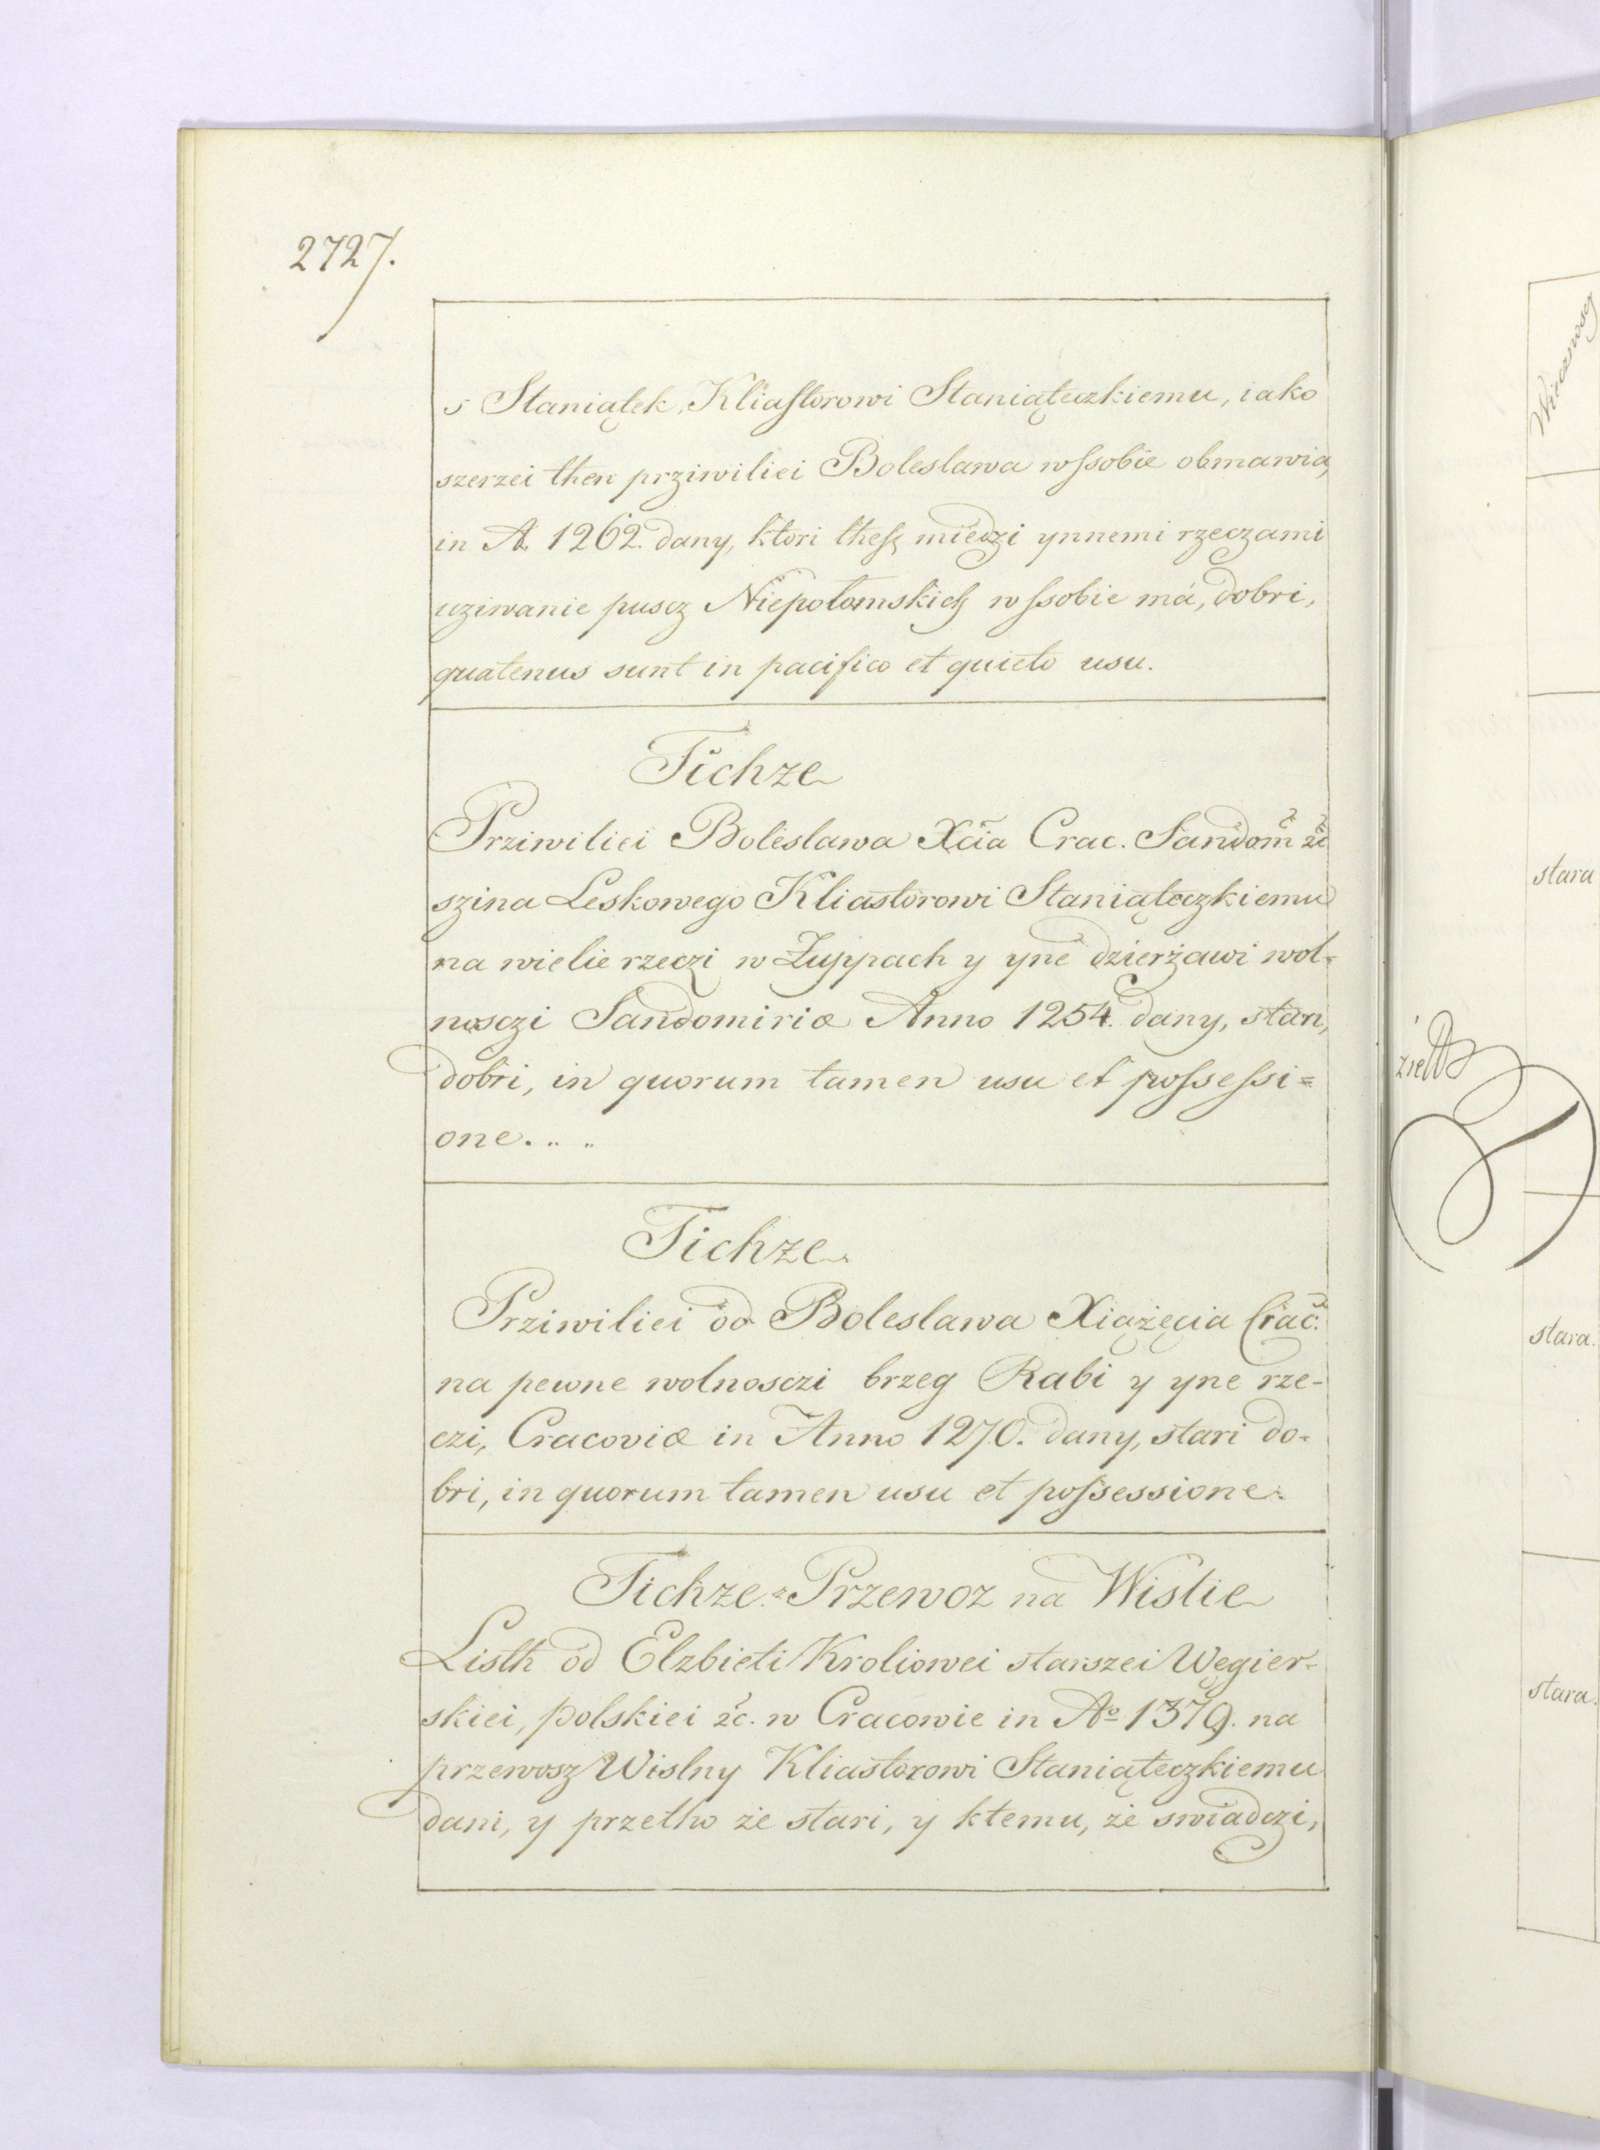 2727.
s Staniątek, Kliasztorowi Staniąteczkiemu, iako
szerzei then prziwiliei Boleslawa wssobie obmawia,
in A. 1262. dany, ktori thesz miedzi ynnemi rzeczami
uziwanie puscz Niepolomskich wssobie má, dobri,
quatenus sunt in pacifico et quieto usu.
Tichże
Prziwiliei Boleslawa Xcia Crac. Sandom: &c
szina Leskowego Kliastorowi Staniąteczkiemu
na wielie rzeczi w Żuppach y yne dzierżawi wol=
nosczi Sandomiriæ Anno 1254. dany, stari,
dobri, in quorum tamen usu et possessi=
one. .. ..
Tichże.
Prziwiliei od Boleslawa Xiążęcia Crac:
na pewne wolnosczi brzeg Rabi y yne rze-
czi, Cracoviæ in Anno 1270. dany, stari do-
bri, in quorum tamen usu et possessione.
Tichże. Przewoz na Wislie
Listh od Elzbieti Kroliowei starszei Węgier-
skiei, polskiei &c. w Cracowie in Aº 1379. na
przewosz Wislny Kliastorowi Staniąteczkiemu
dani, y przetho że stari, y ktemu, że swiadczi,
stara
stara.
stara.